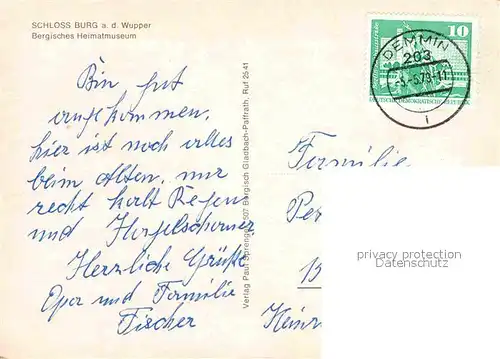 SCHLOSS BURG a. d. Wupper
Bergisches Heimatmuseum
10
DEMMIN
203
-79-11
DEUTSCHE DEMOKRATISCHE REPUBLIK
Bin gut
angekommen,
hier ist noch alles
beim Alten, nur
recht kalt Regen
und Hagelschauer
Herzliche Grüße
Opa und Familie
Fischer
Verlag Paul Sprenger, 507 Bergisch Gladbach-Paffrath, Ruf 25 41
Familie
Pe
privacy protection
Datenschutz
Heinr